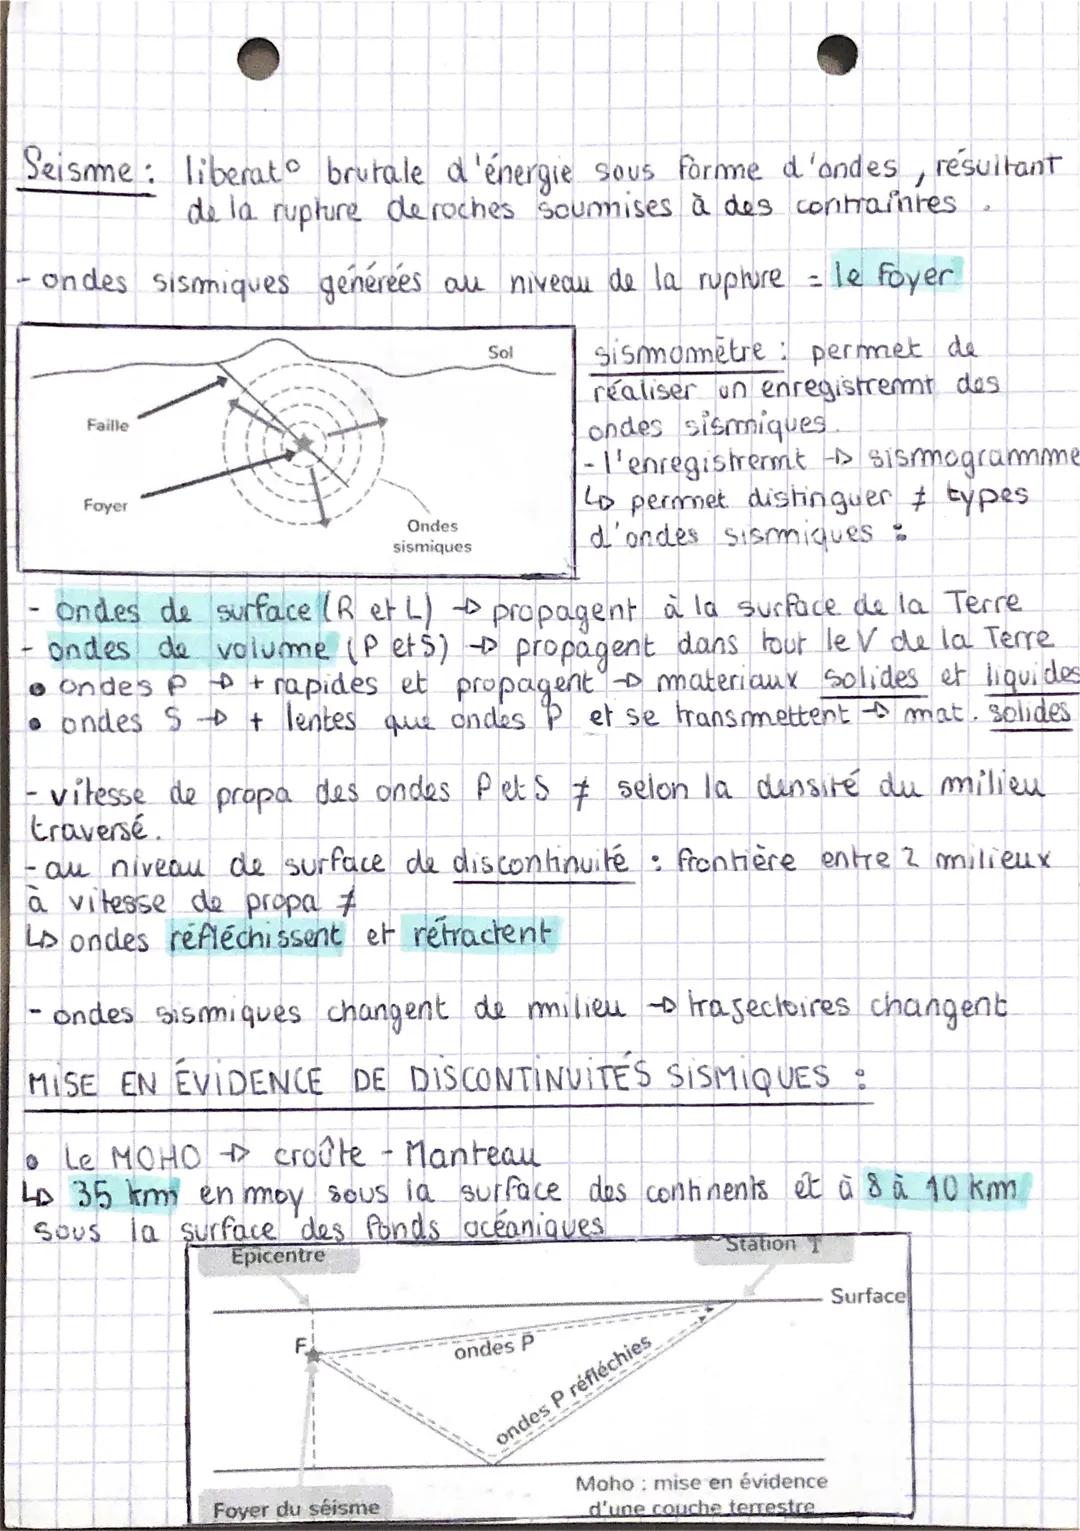 Seisme : liberat° brutale d'énergie sous forme d'ondes, résultant
de la rupture de roches soumises à des contraintes.
- ondes sismiques générées au niveau de la rupture = le foyer
Sol
Faille
Foyer
Ondes
sismiques
sismomètre : permet de
réaliser un enregistremnt des
ondes sismiques.
- l'enregistremnt → sismogramme
↳ permet distinguer ≠ types
d'ondes sismiques :
- ondes de surface (R et L) → propagent à la surface de la Terre
- ondes de volume (P et S) → propagent dans tout le V de la Terre
• ondes P → + rapides et propagent → materiaux solides et liquides
• ondes S → + lentes que ondes P et se transmettent → mat. solides
- vitesse de propa des ondes P et S ≠ selon la densité du milieu
traversé.
- au niveau de surface de discontinuité : frontière entre 2 milieux
à vitesse de propa ≠
↳ ondes réfléchissent et rétractent
- ondes sismiques changent de milieu → trajectoires changent
MISE EN ÉVIDENCE DE DISCONTINUITÉS SISMIQUES :
• Le MOHO → croûte - Manteau
↳ 35 km en moy sous la surface des continents et à 8 à 10 km
sous la surface des fonds océaniques
Epicentre
Station T
Surface
F
ondes P
ondes P réfléchies
Moho : mise en évidence
d'une couche terrestre
Foyer du séisme